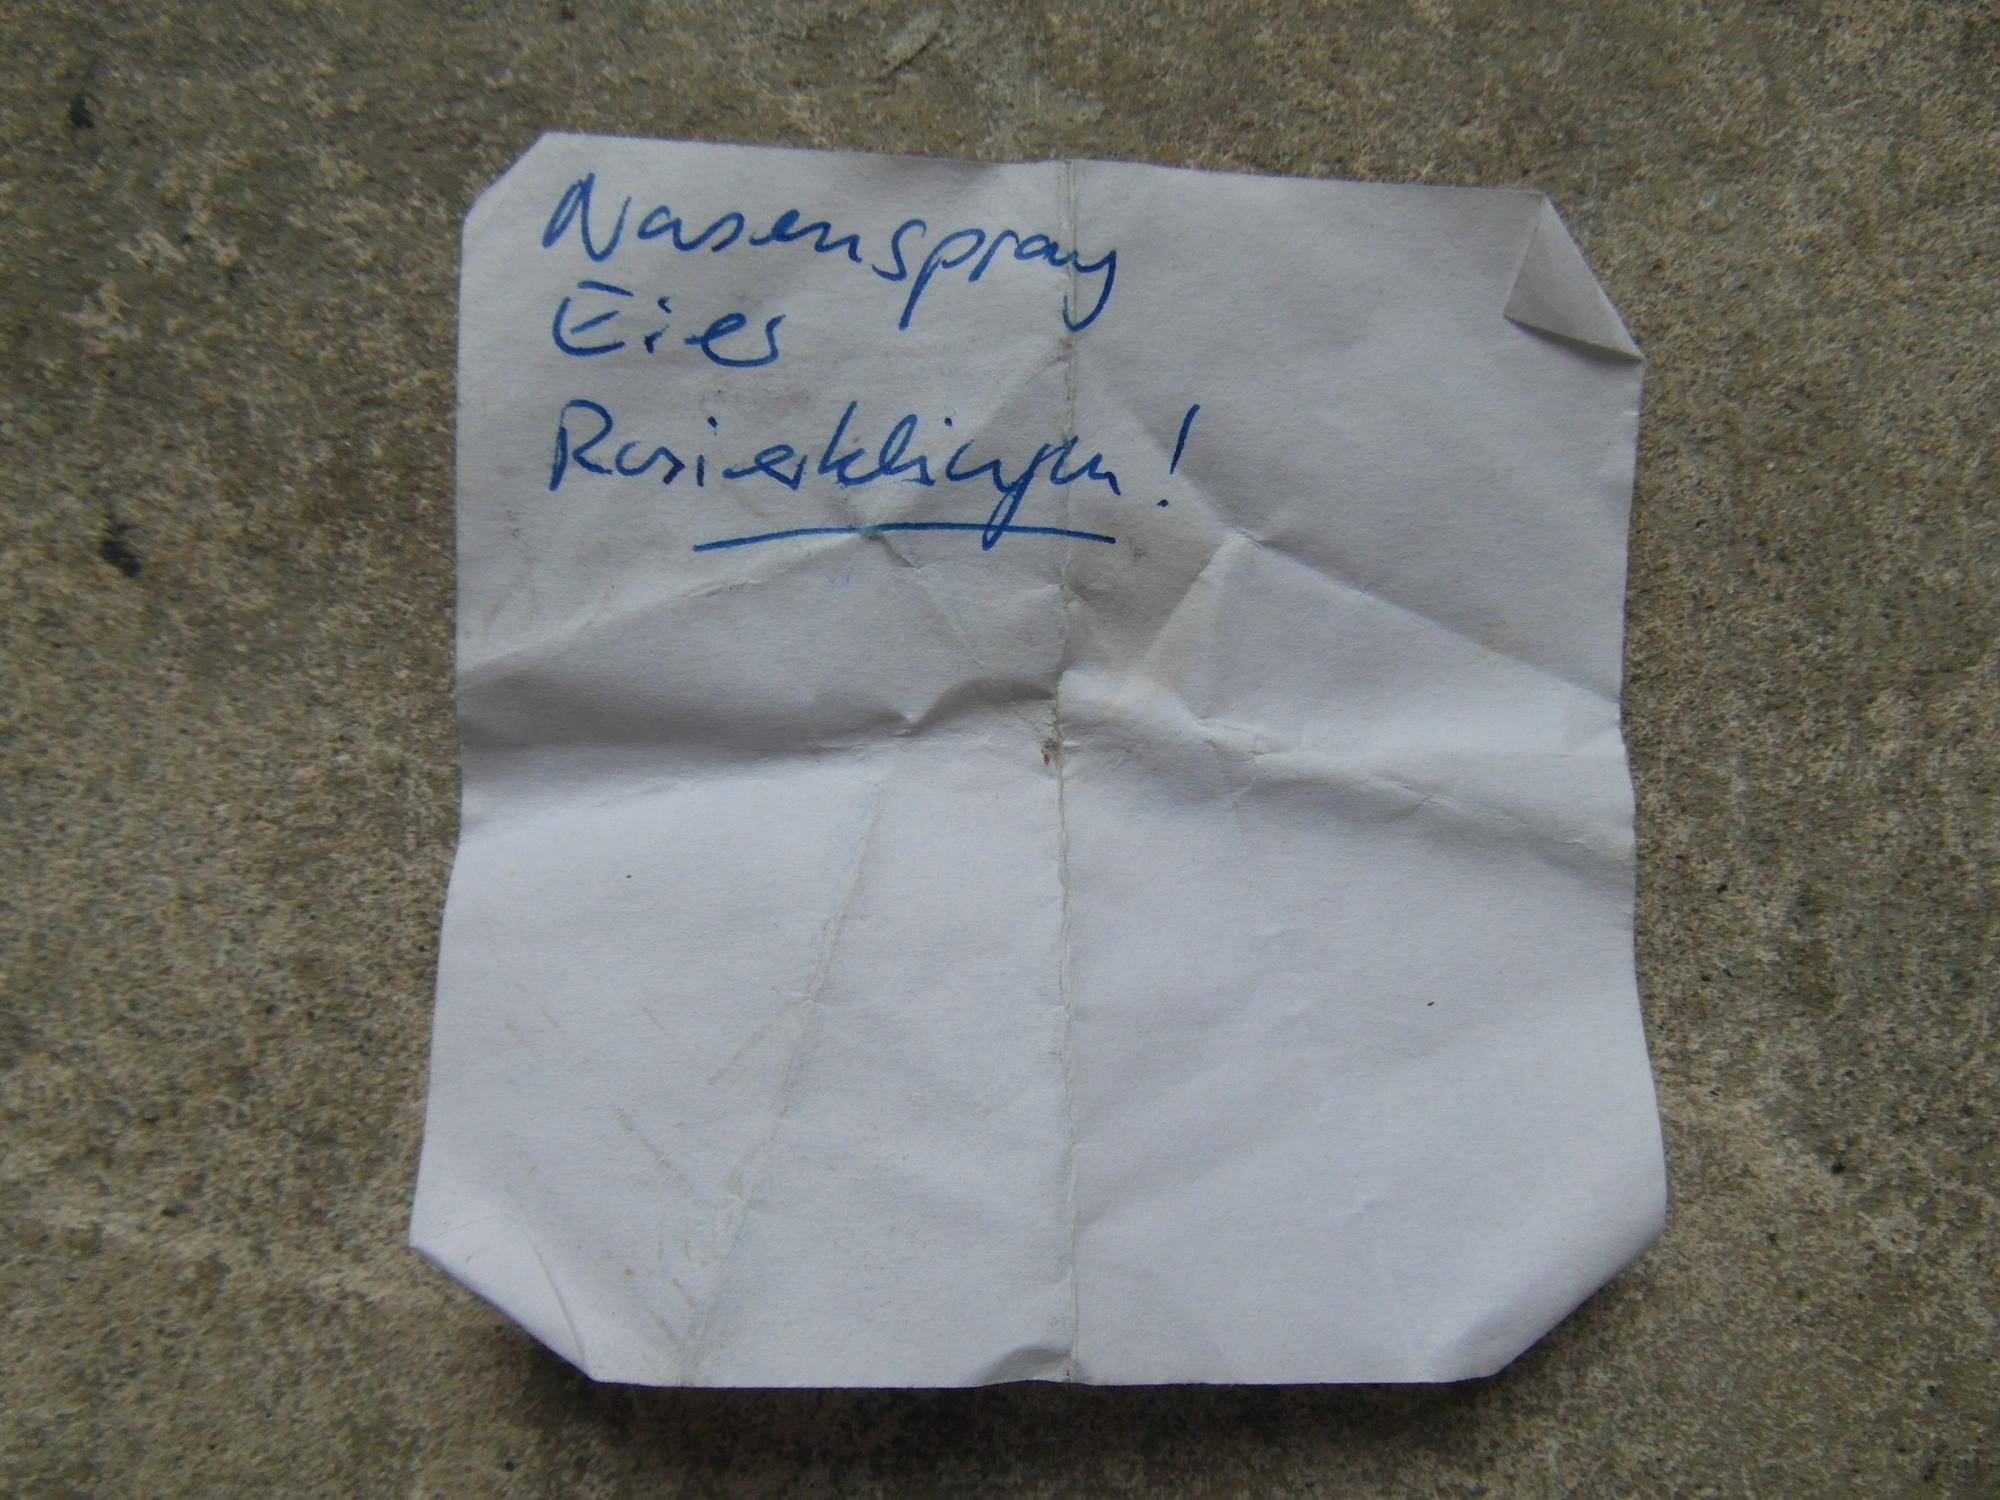 Nasenspray
Eier
Rasierklingen!